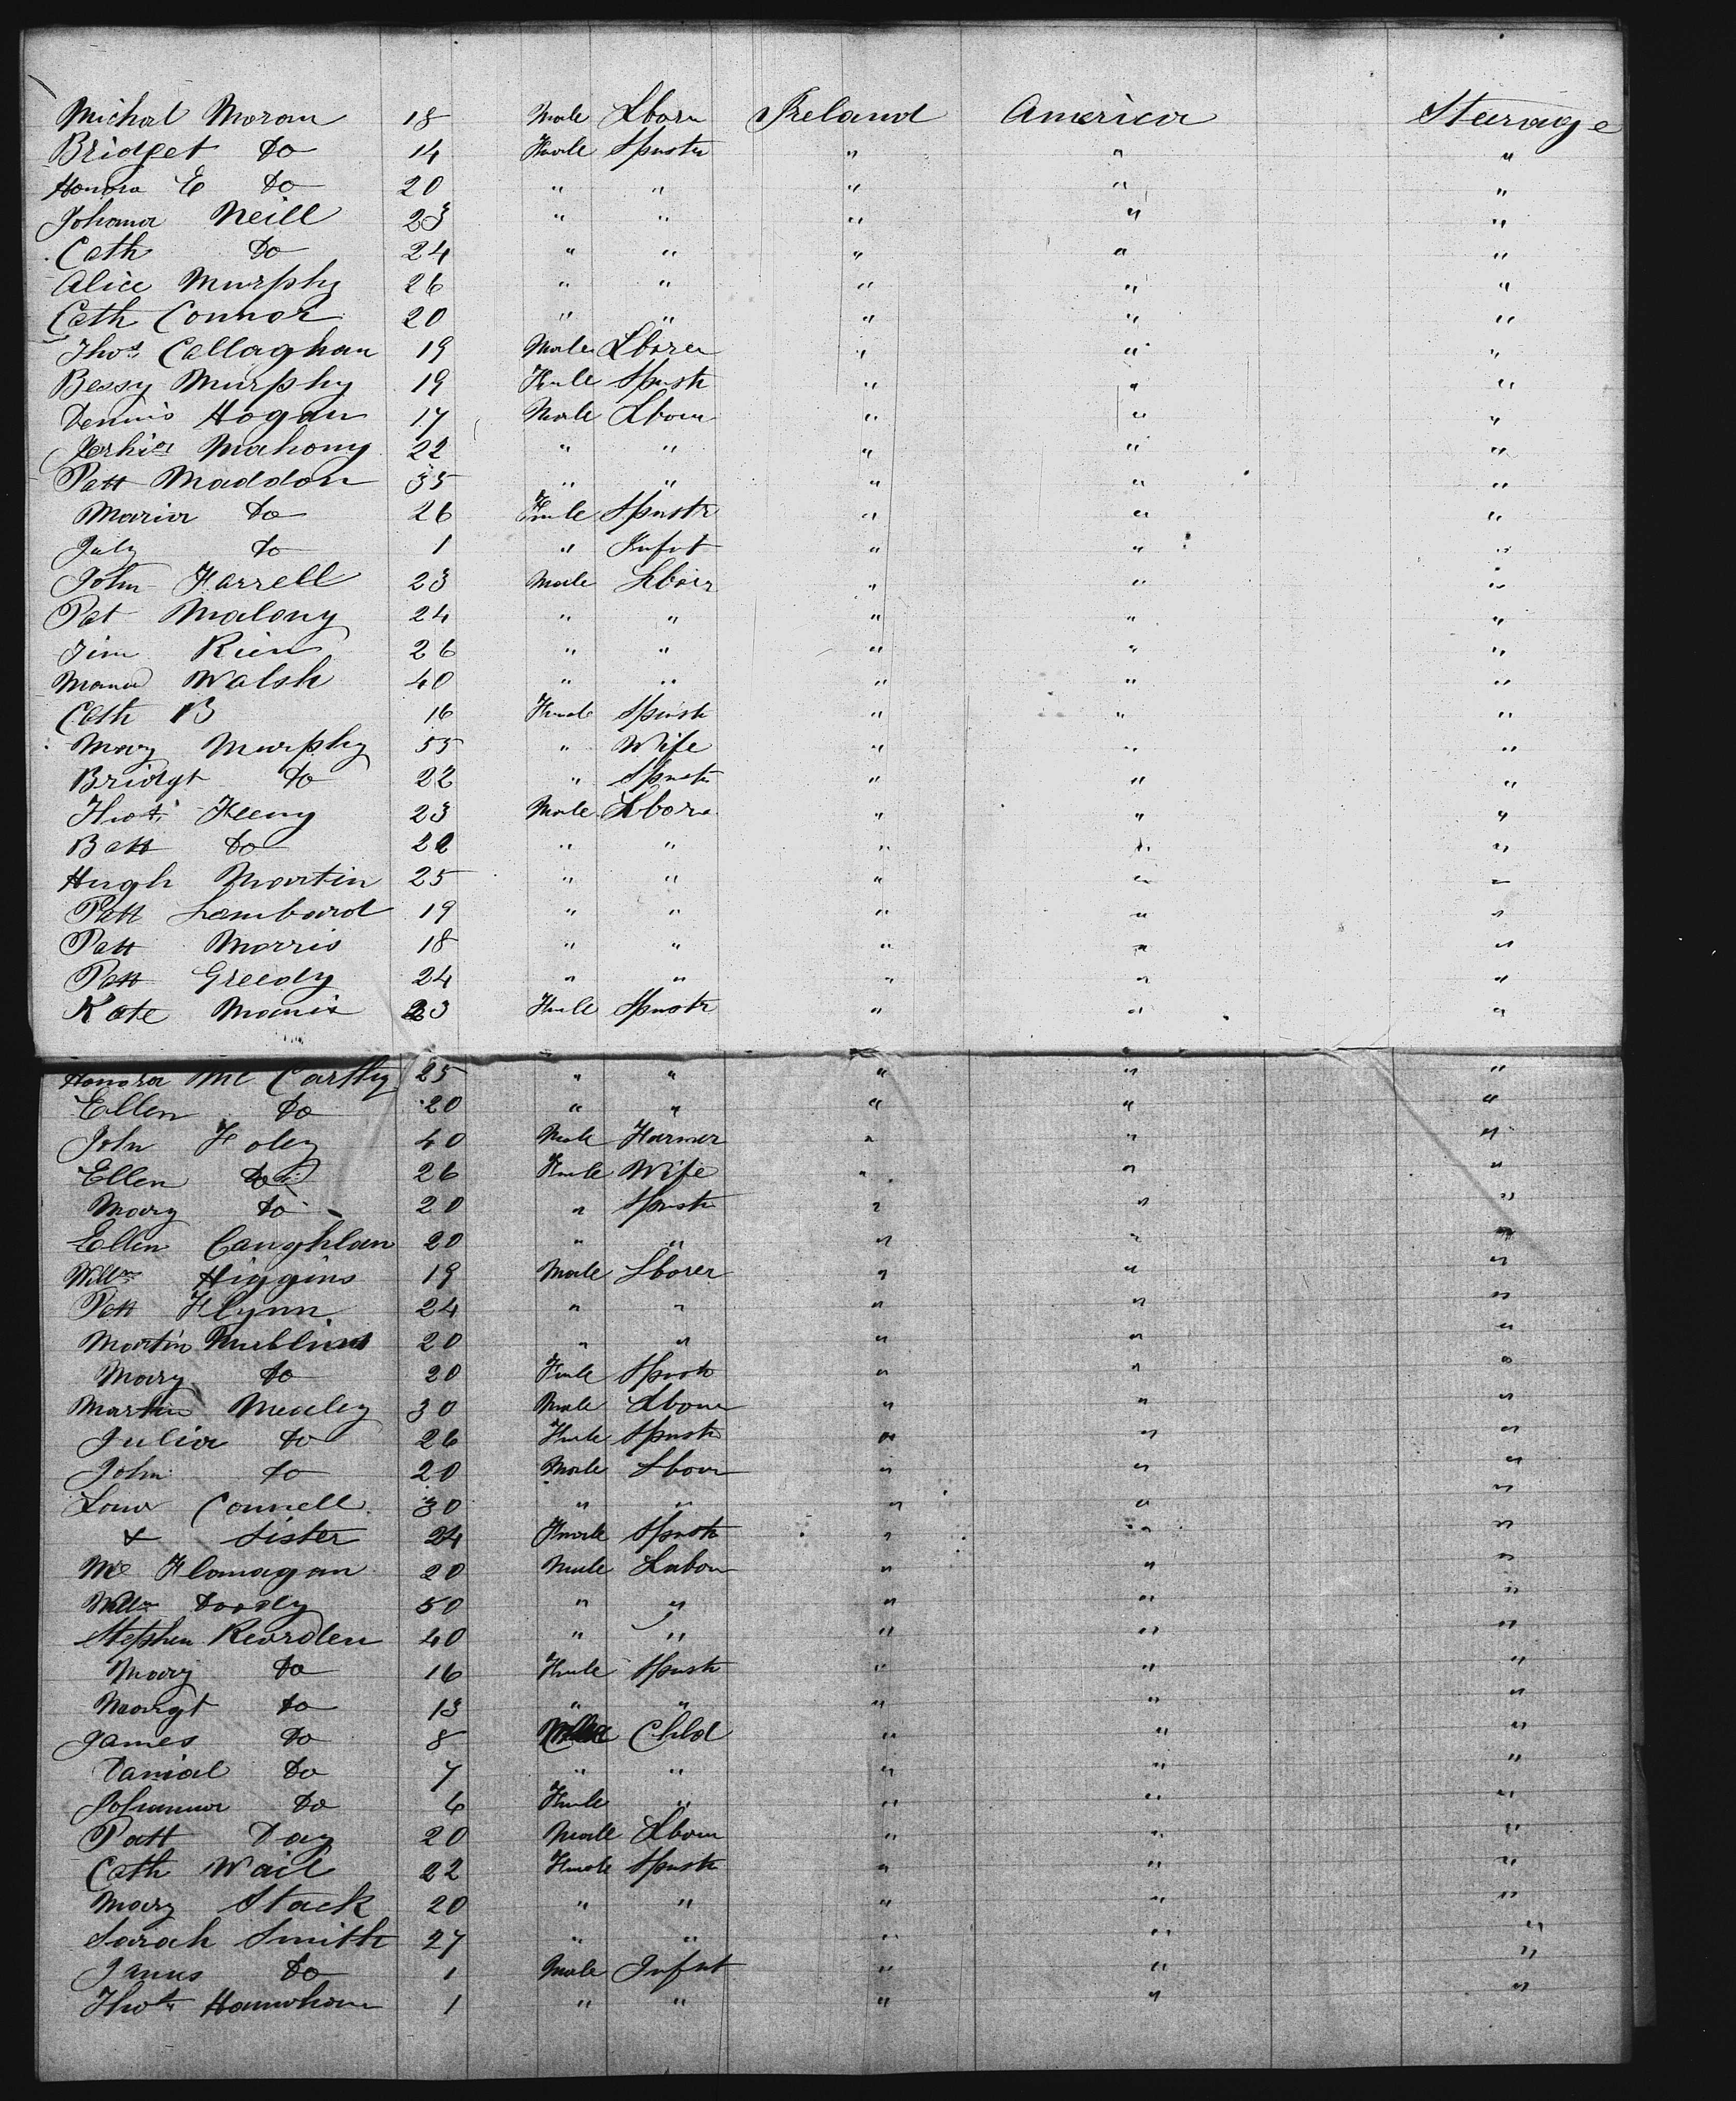 Michal Moran 18 Male Lborn Ireland America Stearage
Bridget Do 14 Fmale Spnstr " " "
Honora E Do 20 " " " " "
Johana Neill 23 " " " " "
Cath Do 24 " " " " "
Alice Murphy 26 " " " " "
Cath Connor 20 " " " " "
Thos Callaghan 19 Male Lborer " " "
Bessy Murphy 19 Fmle Spnstr " " "
Dennis Hogan 17 Male Lborer " " "
Jerhia Mahony 22 " " " " "
Patt Maddon 35 " " " " "
Maria Do 26 Fmle Spnstr " " "
July Do 1 " Infnt " " "
John Farrell 23 Male Lborr " " "
Pat Malony 24 " " " " "
Jim 26 " " " " "
Walsh 40 " " " " "
Cath B 16 Fmale Spnstr " " "
Mary Murphy 55 " Wife " " "
Bridgt Do 22 " Spnstr " " "
Thos Feeny 23 Male Lborer " " "
Batt Do 22 " " " " "
Hugh Martin 25 " " " " "
Patt Lambard 19 " " " " "
Patt Morris 18 " " " " "
Patt Greedy 24 " " " " "
Kate 23 Fmle Spnstr " " "
Honora Mc Carthy 25 " " " " "
Ellen Do 20 " " " " "
John Foley 40 Male Farmer " " "
Ellen Do 26 Fmle Wife " " "
Mary Do 20 " Spnstr " " "
Ellen Caughlan 20 " " " " "
Willm Higgins 19 Male Lborer " " "
Patt Flynn 24 " " " " "
Martin Mullins 20 " " " " "
Mary Do 20 Fmle Spnstr " " "
Martin Mealey 30 Male Lborer " " "
Julia Do 26 Fmle Spnstr " " "
John Do 20 Male Lborer " " "
Connell 30 " " " " "
& Sister 24 Fmale Spnstr " " "
Flanagan 20 Male Labour " " "
Willm Dooley 50 " " " " "
Stephen Reorden 40 " " " " "
Mary Do 16 Fmle Spnstr " " "
Margt Do 13 " " " " "
James Do 8 Child " " "
Danial Do 7 " " " " "
Johanna Do 6 Fmle " " " "
Patt Day 20 Male Lborer " " "
Cath Wail 22 Fmale Spnstr " " "
Mary Stack 20 " " " " "
Sarah Smith 27 " " " " "
James Do 1 Male Infnt " " "
Thos 1 " " " " "